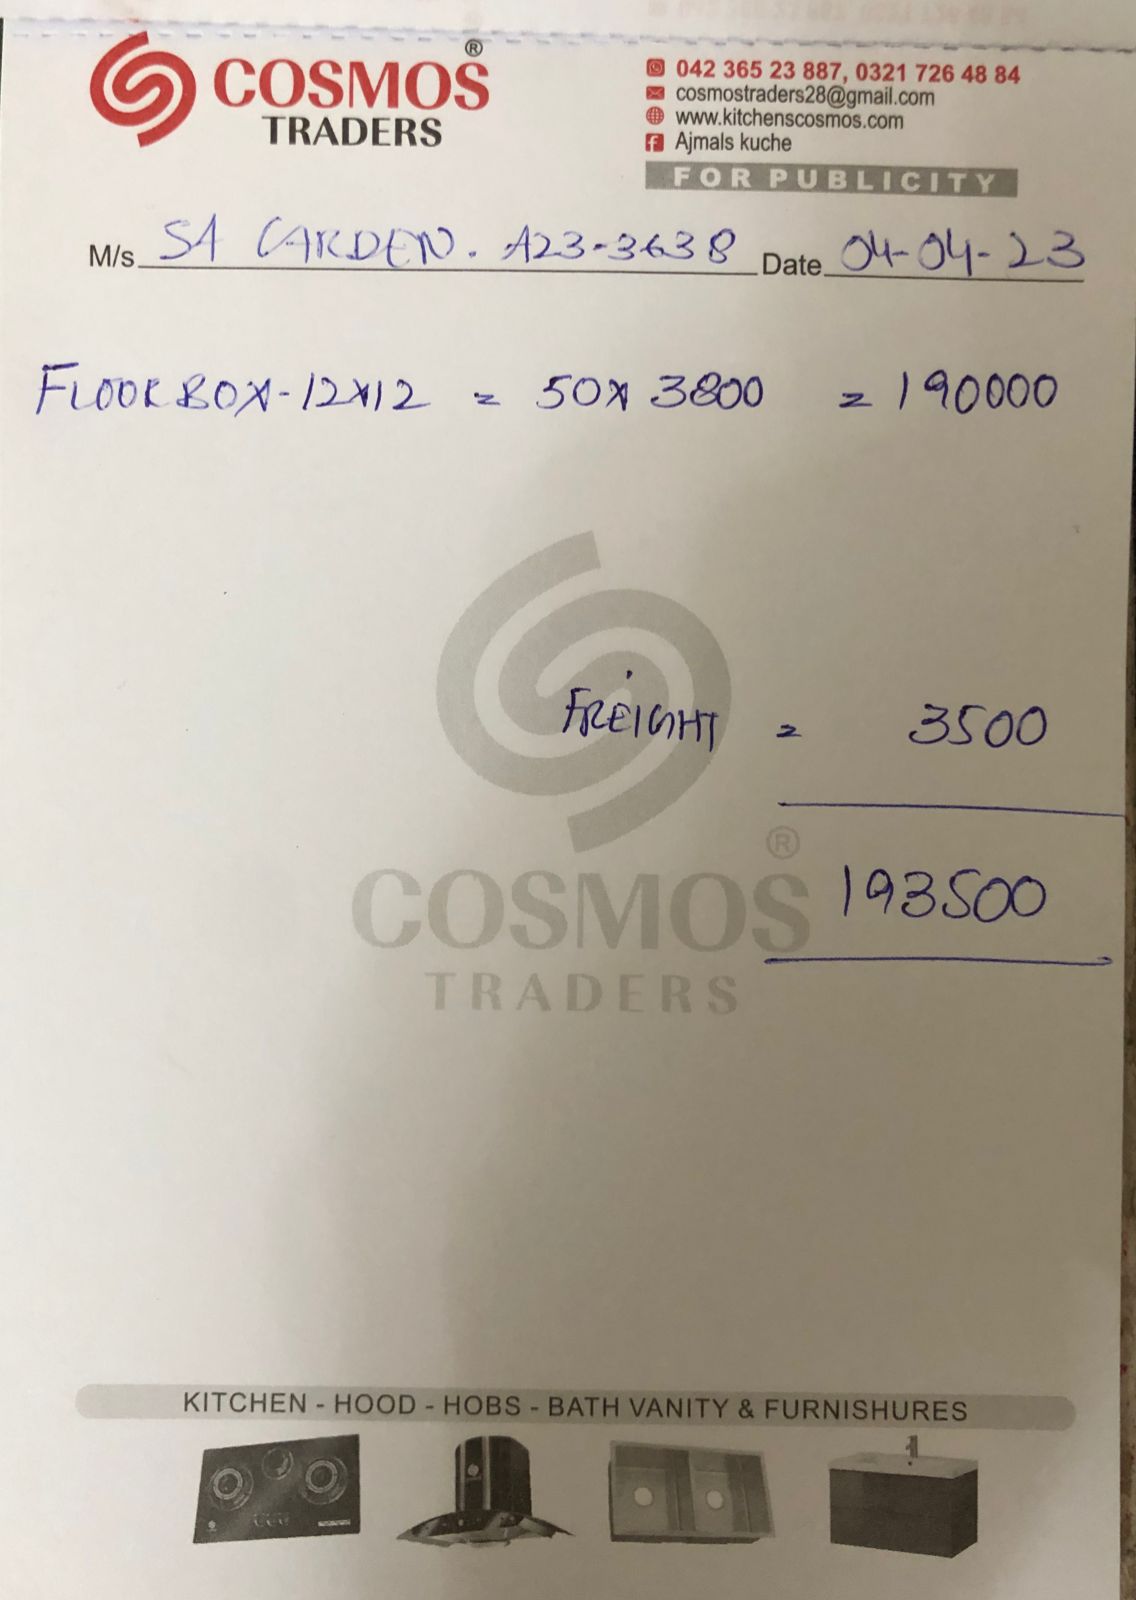 COSMOS ®
TRADERS
042 365 23 887, 0321 726 48 84
cosmostraders28@gmail.com
www.kitchenscosmos.com
Ajmals kuche
FOR PUBLICITY
M/s SA GARDEN. A23-3638 Date 04-04-23
FLOOR BOX-12x12 = 50x 3800 = 190000
FREIGHT = 3500
193500
COSMOS ®
TRADERS
KITCHEN - HOOD - HOBS - BATH VANITY & FURNISHURES